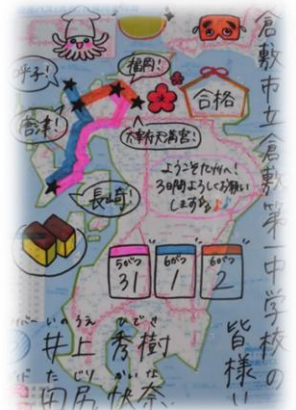 倉敷市立倉敷第一中学校の
皆様い
呼子!
福岡!
合格
唐津!
太宰府天満宮!
長崎!
ようこそ九州へ!
3日間よろしくお願い
します♪♪
5がつ
31
6がつ
1
6がつ
2
いのうえ ひでき
井上 秀樹
たじり かいな
田尻 快奈